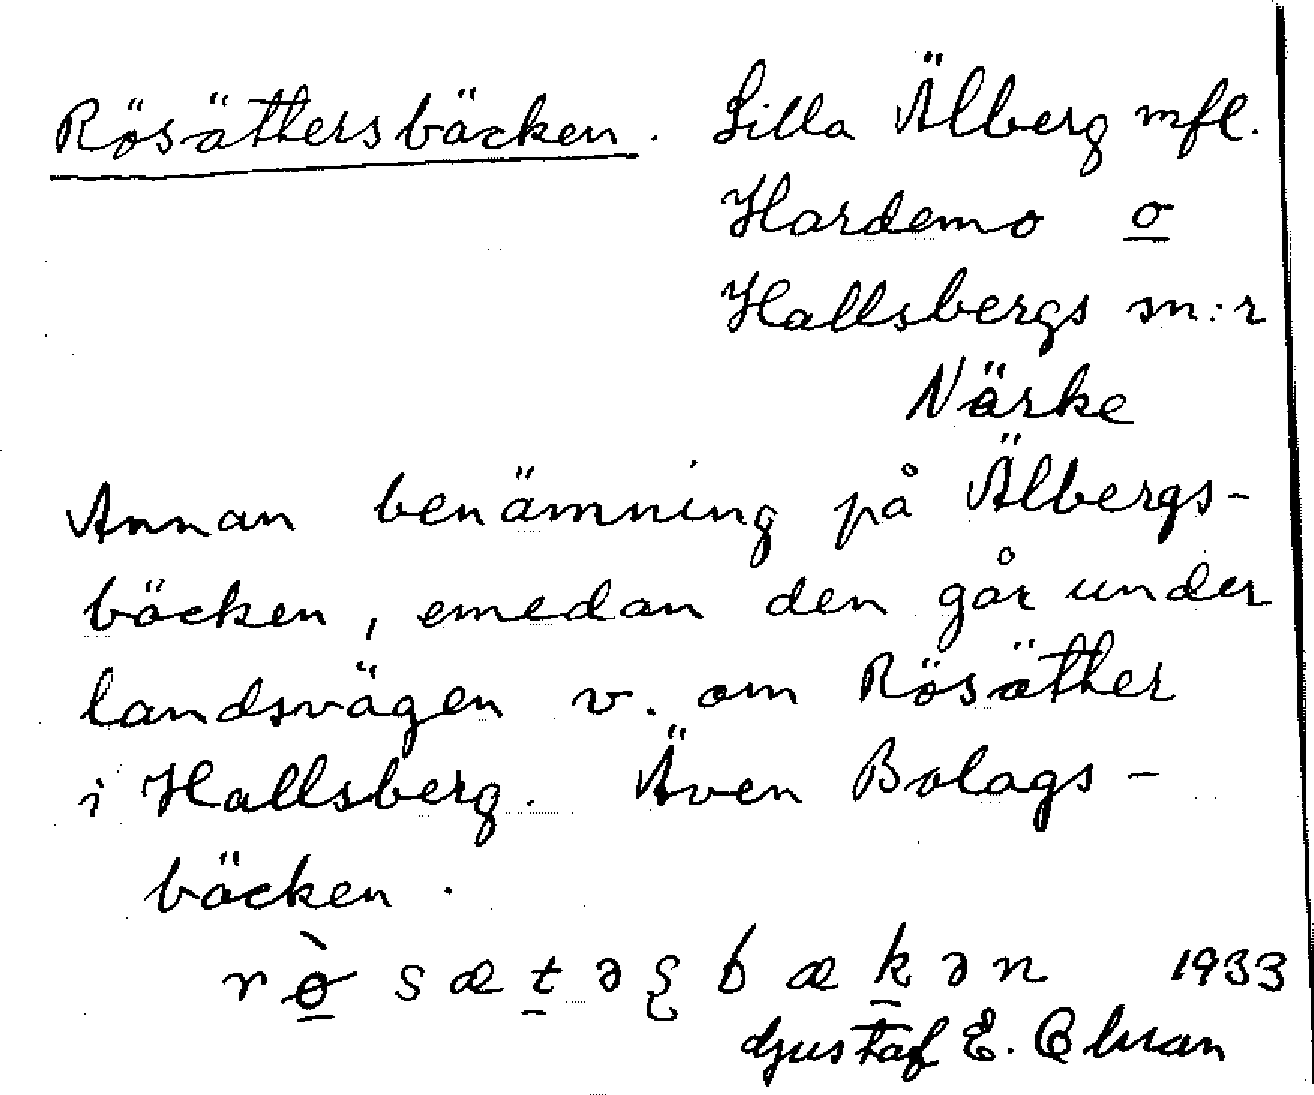 Rösättersbäcken. Lilla Älberg mfl.
Hardemo o
Hallsbergs sn:r
Närke
Annan benämning på Älbergs-
bäcken, emedan den går under
landsvägen v. om Rösätter
i Hallsberg. Även Bolags-
bäcken.
1933
Gustaf E.